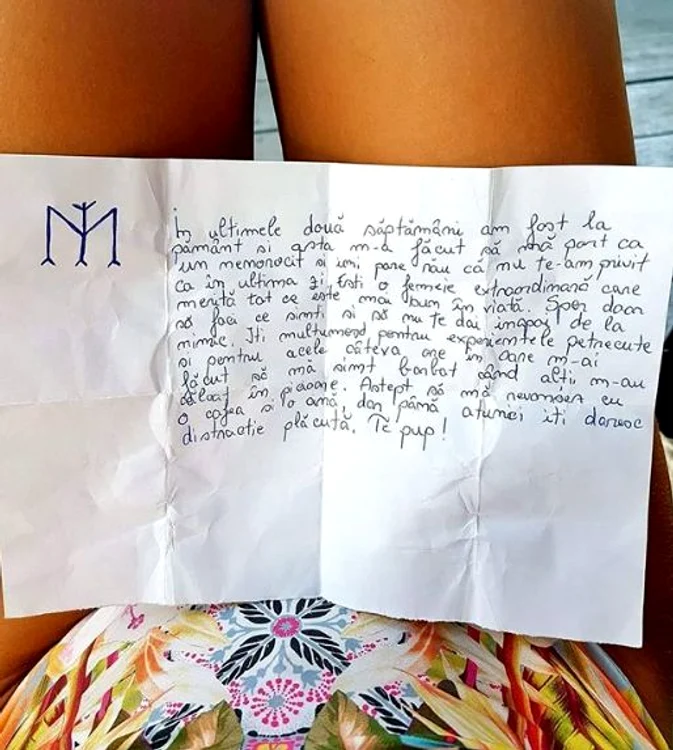 În ultimele două săptămâni am fost la
pământ si asta m-a făcut să mă port ca
un memorocit si imi pare rău că nu te-am privit
ca în ultima zi. Esti o femeie extraordinară care
merită tot ce este mai bun în viată. Sper doar
să faci ce simti si să nu te dai înapoi de la
nimic. Iti multumesc pentru experientele petrecute
si pentru acele câteva ore în care m-ai
făcut să mă simt barbat când altii m-au
călcat în picioare. Astept să mă revansez cu
o cafea si o amă, dar până atunci iti doresc
distractie plăcută. Te pup!